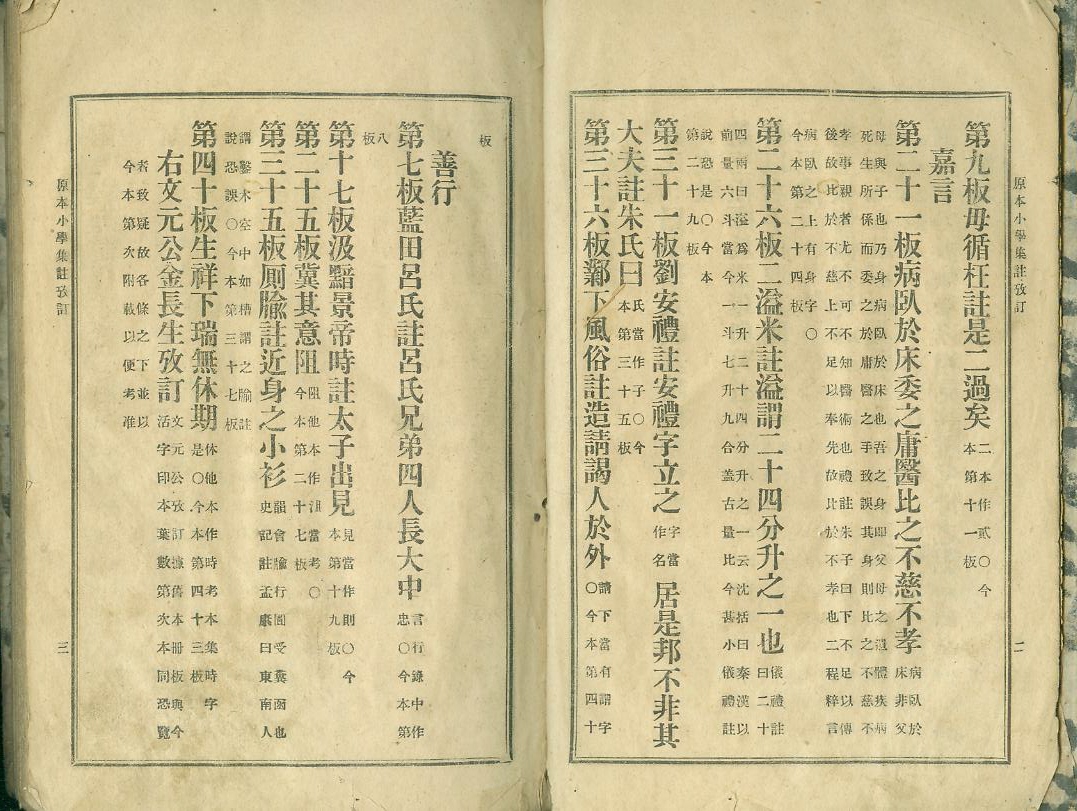 原本小學集註攷訂 二
第九板毋循枉註是二過矣 二本作貳〇今
本第十一板
嘉言
第二十一板病臥於床委之庸醫比之不慈不孝 病臥於
床非父
母與子也乃身病臥於床也吾之身即父母之遺體疾病
死生所係而委之於庸醫之手致誤其身則比之不慈不
孝事親者尤不可不知醫術也禮註朱子曰下不足以傳
後故比於不慈上不足以奉先故比於不孝也二程粹言
病臥之上有身字〇
今本第二十四板
第二十六板二溢米註溢謂二十四分升之一也 儀禮註
曰二十
四兩曰溢爲米一升二十四分升之一云沈括曰秦漢以
前量六斗當今一斗七升九合蓋古量比今甚小儀禮註
說恐是〇今本
第二十九板
第三十一板劉安禮註安禮字立之 字當
作名 居是邦不非其
大夫註朱氏曰 氏當作子〇今
本第三十五板
第三十六板鄴下風俗註造請謁人於外 請下當有謂字
〇今本第四十
板
善行
第七板藍田呂氏註呂氏兄弟四人長大中 言行錄中作
忠〇今本第
八
板
第十七板汲黯景帝時註太子出見 見當作則〇今
本第十九板
第二十五板冀其意阻 阻他本作沮當考〇
今本第二十七板
第三十五板厠牏註近身之小衫 韻會牏行圊受糞函也
史記註孟康曰東南人
謂鑿木空中如槽謂之牏註
說恐誤〇今本第三十七板
第四十板生祥下瑞無休期 休他本作時考本集時字
是〇今本第四十三板
右文元公金長生攷訂 文元公攷訂據舊本冊板與今
活字印本葉數第次本同恐覽
者致疑故各條之下並以
今本第次附載以便考准
原本小學集註攷訂 三